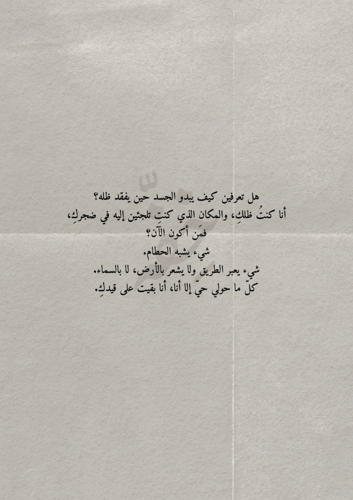 هل تعرفين كيف يبدو الجسد حين يفقد ظله؟
أنا كنتُ ظلكِ، والمكان الذي كنتِ تلجئين إليه في ضجركِ،
فمَن أكون الآن؟
شيء يشبه الحطام.
شيء يعبر الطريق ولا يشعر بالأرض، لا بالسماء.
كلّ ما حولي حيّ إلا أنا، أنا بقيت على قيدكِ.